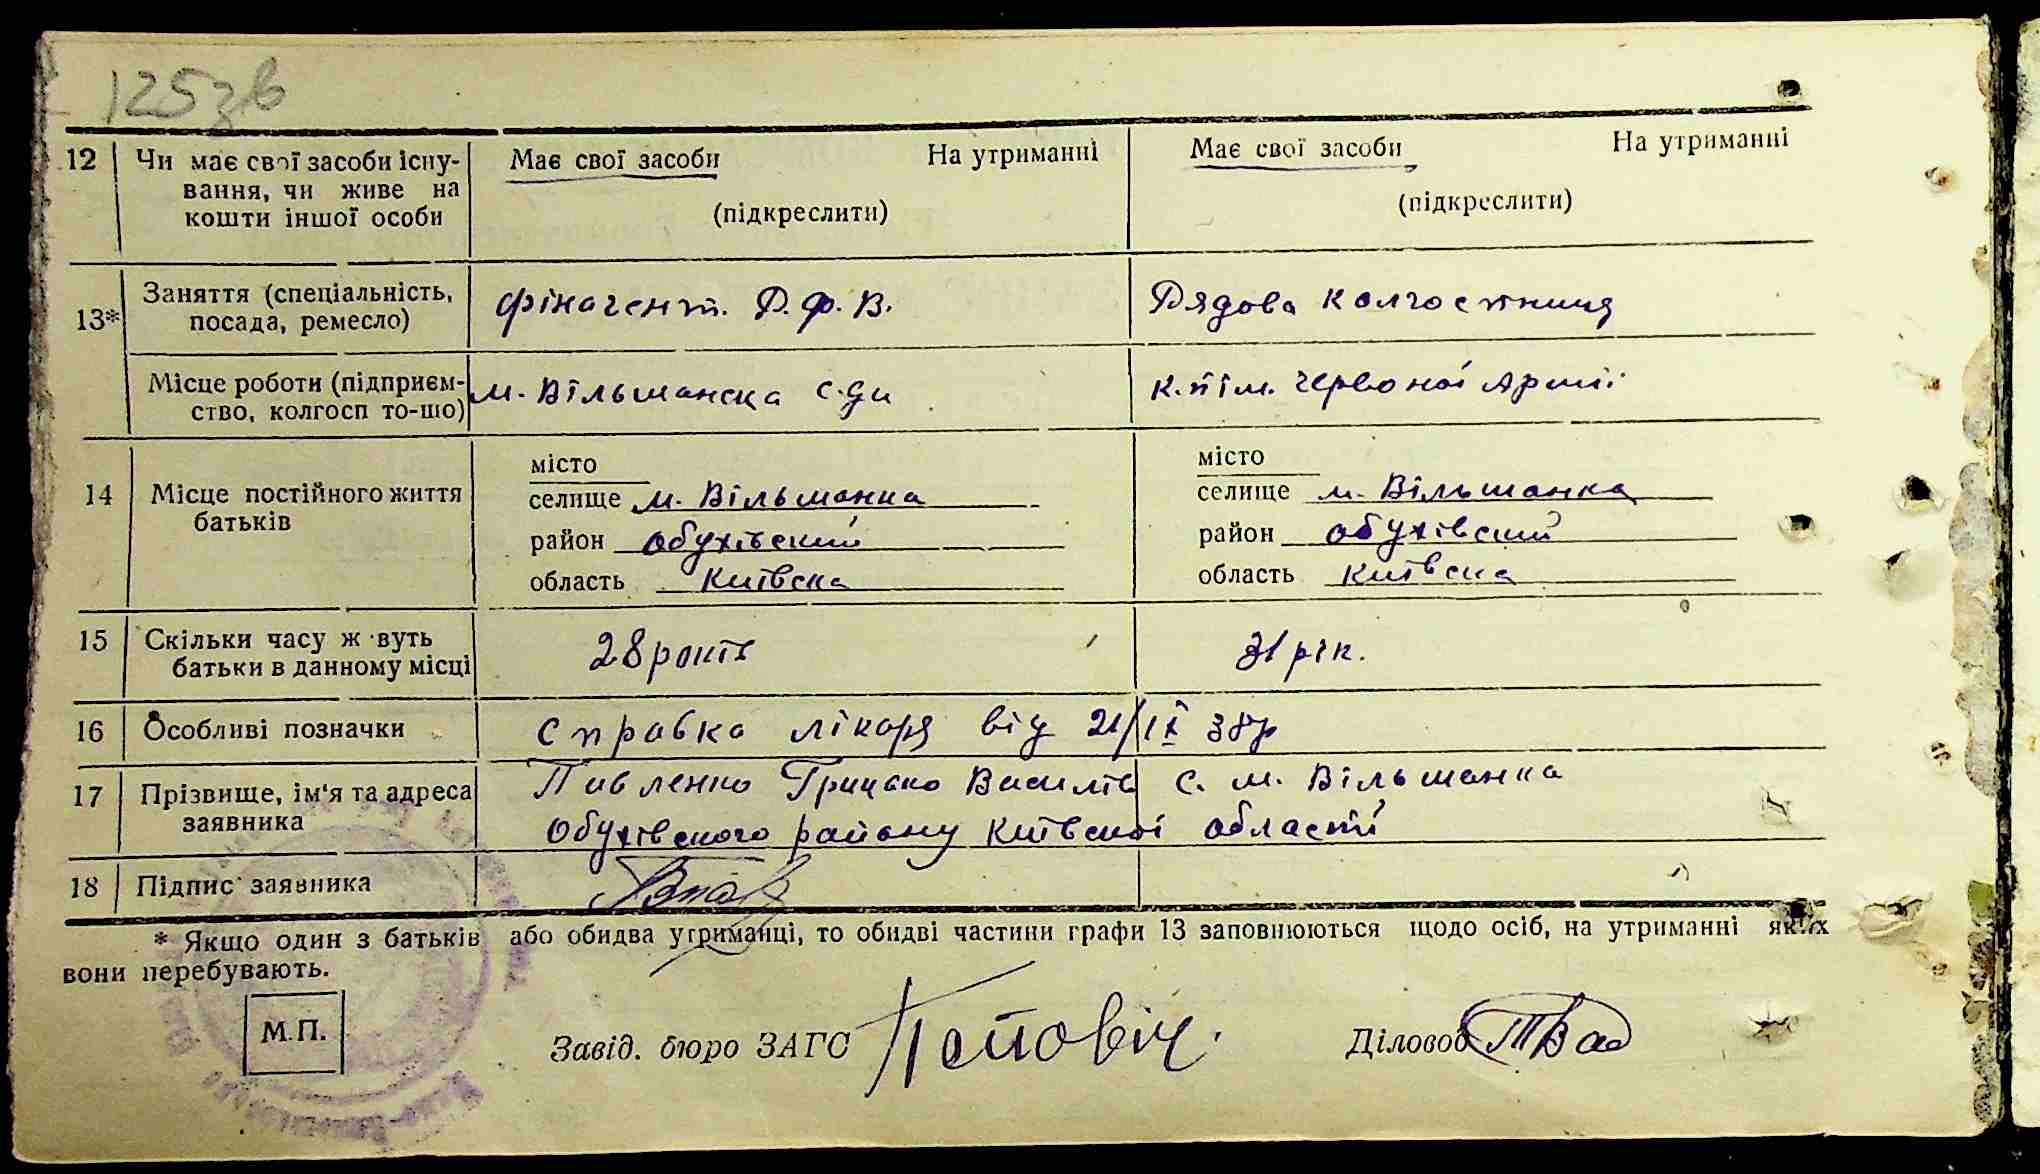 125зв
12 Чи має свої засоби існу- Має свої засоби На утриманні Має свої засоби На утриманні
вання, чи живе на
кошти іншої особи (підкреслити) (підкреслити)
13* Заняття (спеціальність, фінагент. Р.Ф.В. Рядова колгоспниця
посада, ремесло)
Місце роботи (підприєм- м. Вільшанска с. к. ім. Червоної Армії
ство, колгосп то-що)
14 Місце постійного життя місто місто
батьків селище м. Вільшанка селище м. Вільшанка
район Обухівский район Обухівский
область Київска область Київска
15 Скільки часу ж вуть 28 років 31 рік.
батьки в данному місці
16 Особливі позначки Справка лікаря від 21/ІХ 38р
17 Прізвище, ім'я та адреса Павленко Грицько Василів с. м. Вільшанка
заявника Обухівского району Київскої області
18 Підпис заявника
* Якщо один з батьків або обидва утриманці, то обидві частини графи 13 заповнюються щодо осіб, на утриманні яких
вони перебувають.
М.П. Завід. бюро ЗАГС Попович. Діловод